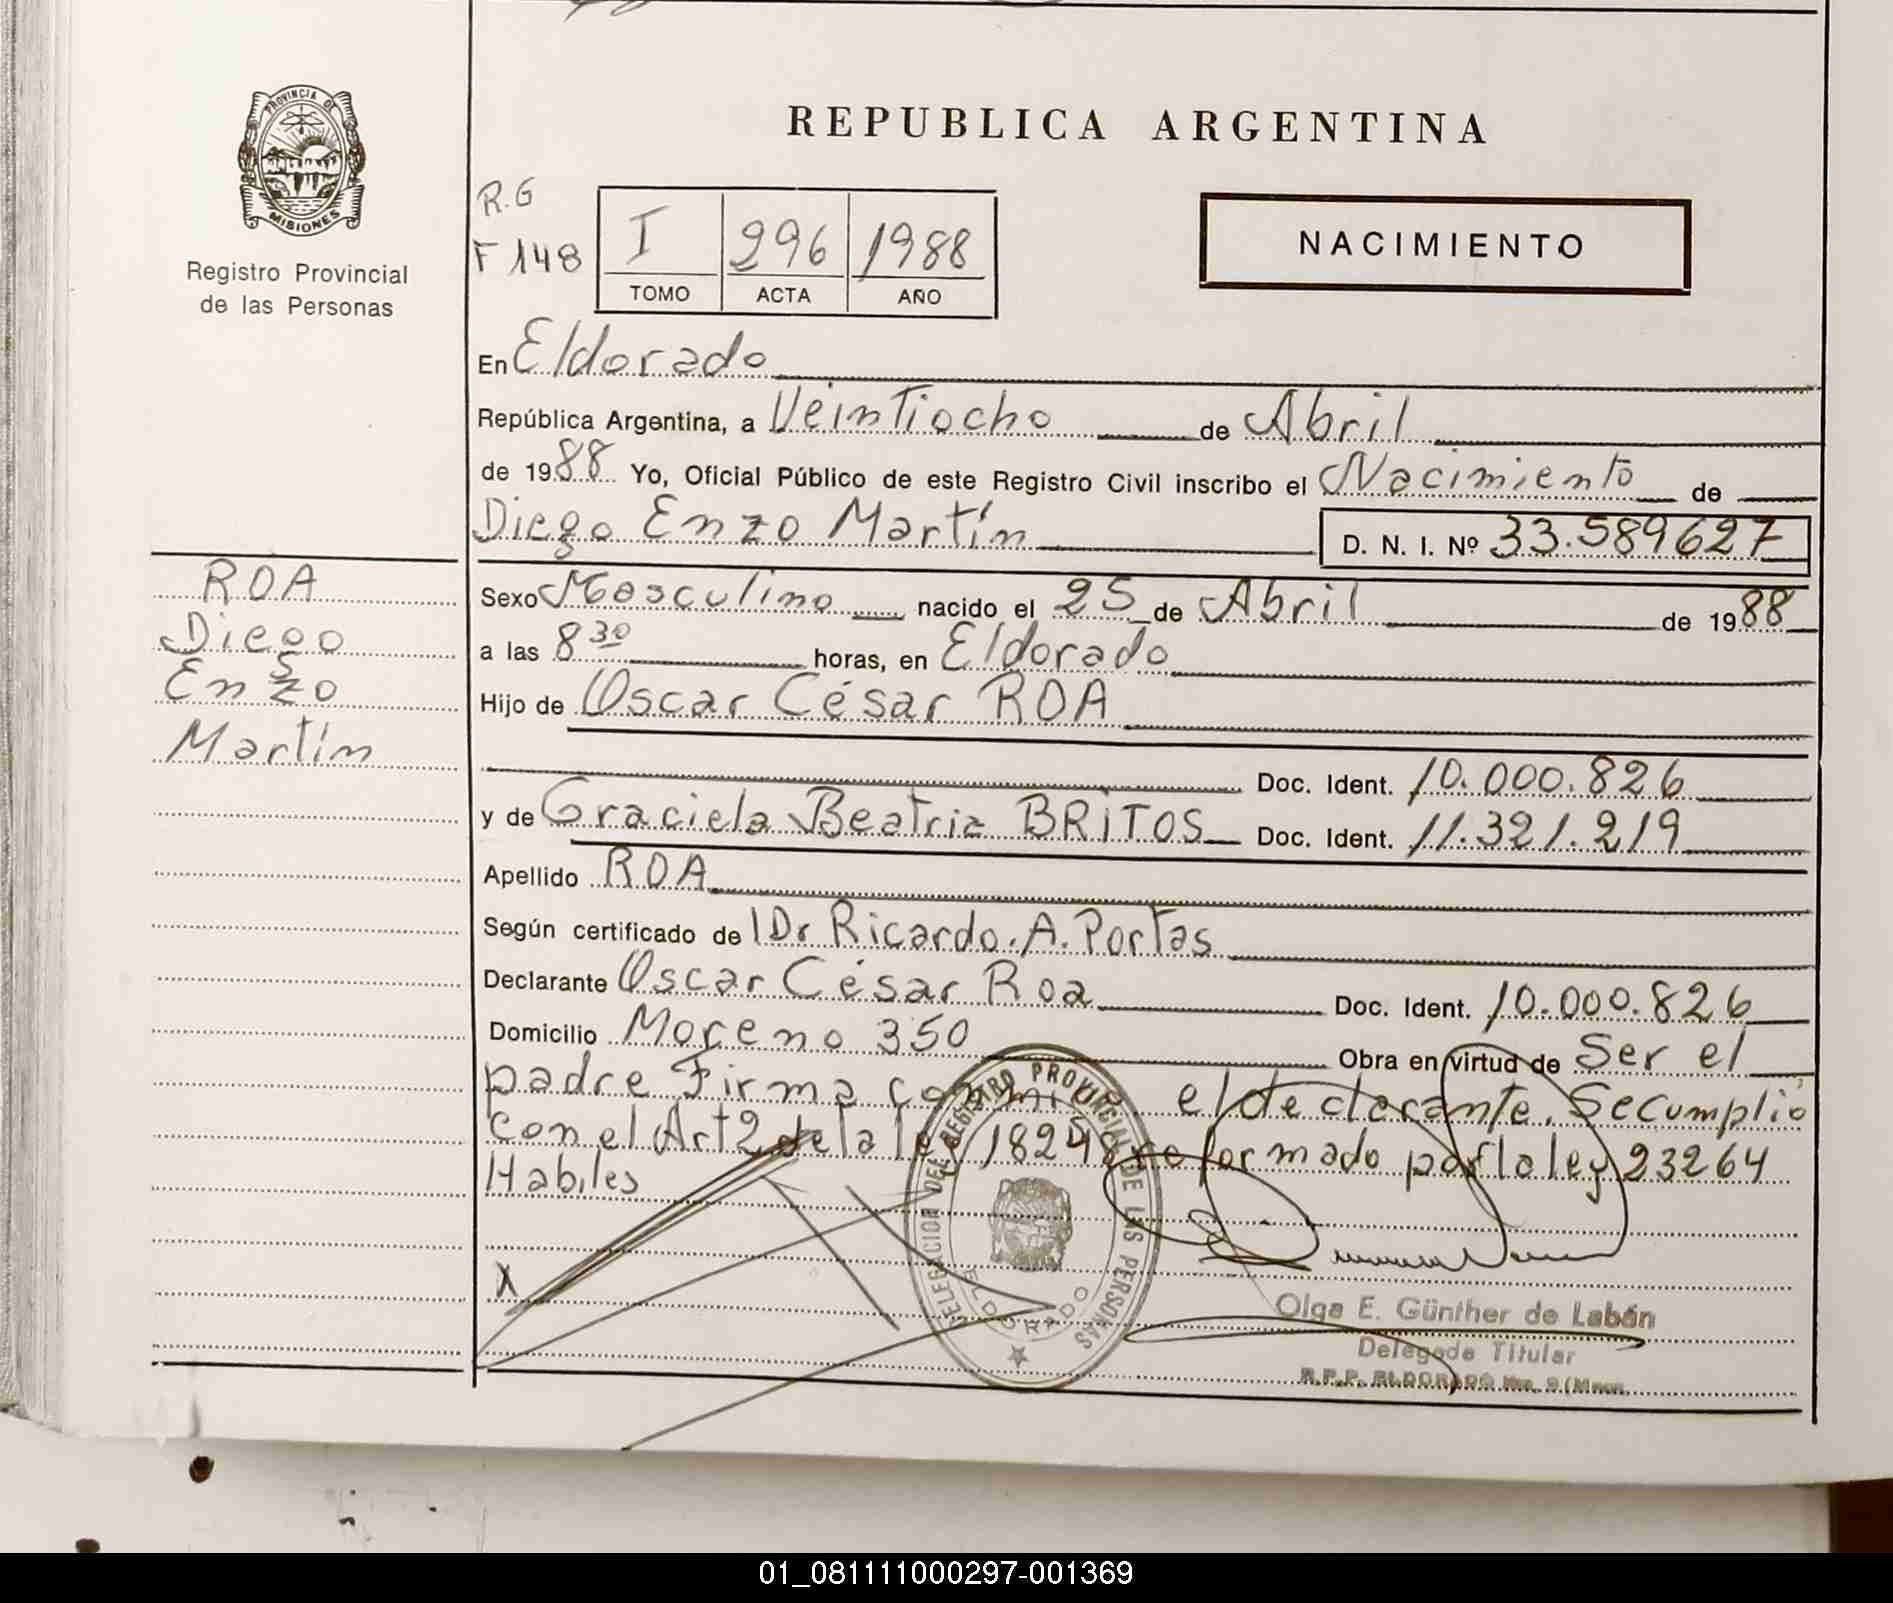 PROVINCIA DE
MISIONES
Registro Provincial
de las Personas
REPUBLICA ARGENTINA
R.G
F 148
I 296 1988
TOMO ACTA AÑO
NACIMIENTO
En Eldorado
República Argentina, a Veintiocho de Abril
de 1988 Yo, Oficial Público de este Registro Civil inscribo el Nacimiento de
Diego Enzo Martín D. N. I. Nº 33.589627
ROA
Diego
Enzo
Martín
Sexo Masculino nacido el 25 de Abril de 1988
a las 8 30 horas, en Eldorado
Hijo de Oscar César ROA
Doc. Ident. 10.000.826
y de Graciela Beatriz BRITOS Doc. Ident. 11.321.219
Apellido ROA
Según certificado de Dr Ricardo. A. Portas
Declarante Oscar César Roa Doc. Ident. 10.000.826
Domicilio Moreno 350 Obra en virtud de Ser el
padre Firma conmigo el declarante. Se cumplió
con el Art 2 de la ley 18248 reformado por la ley 23264
Habiles
X
DELEGACION DEL REGISTRO PROVINCIAL DE LAS PERSONAS
ELDORADO
Olga E. Günther de Labán
Delegada Titular
R.P.P. ELDORADO
01_081111000297-001369